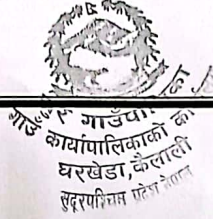 गाउँपा
गाउँ कार्यापालिकाको का
घरखेडा, कैलाली
सुदूरपश्चिम प्रदेश नेपाल